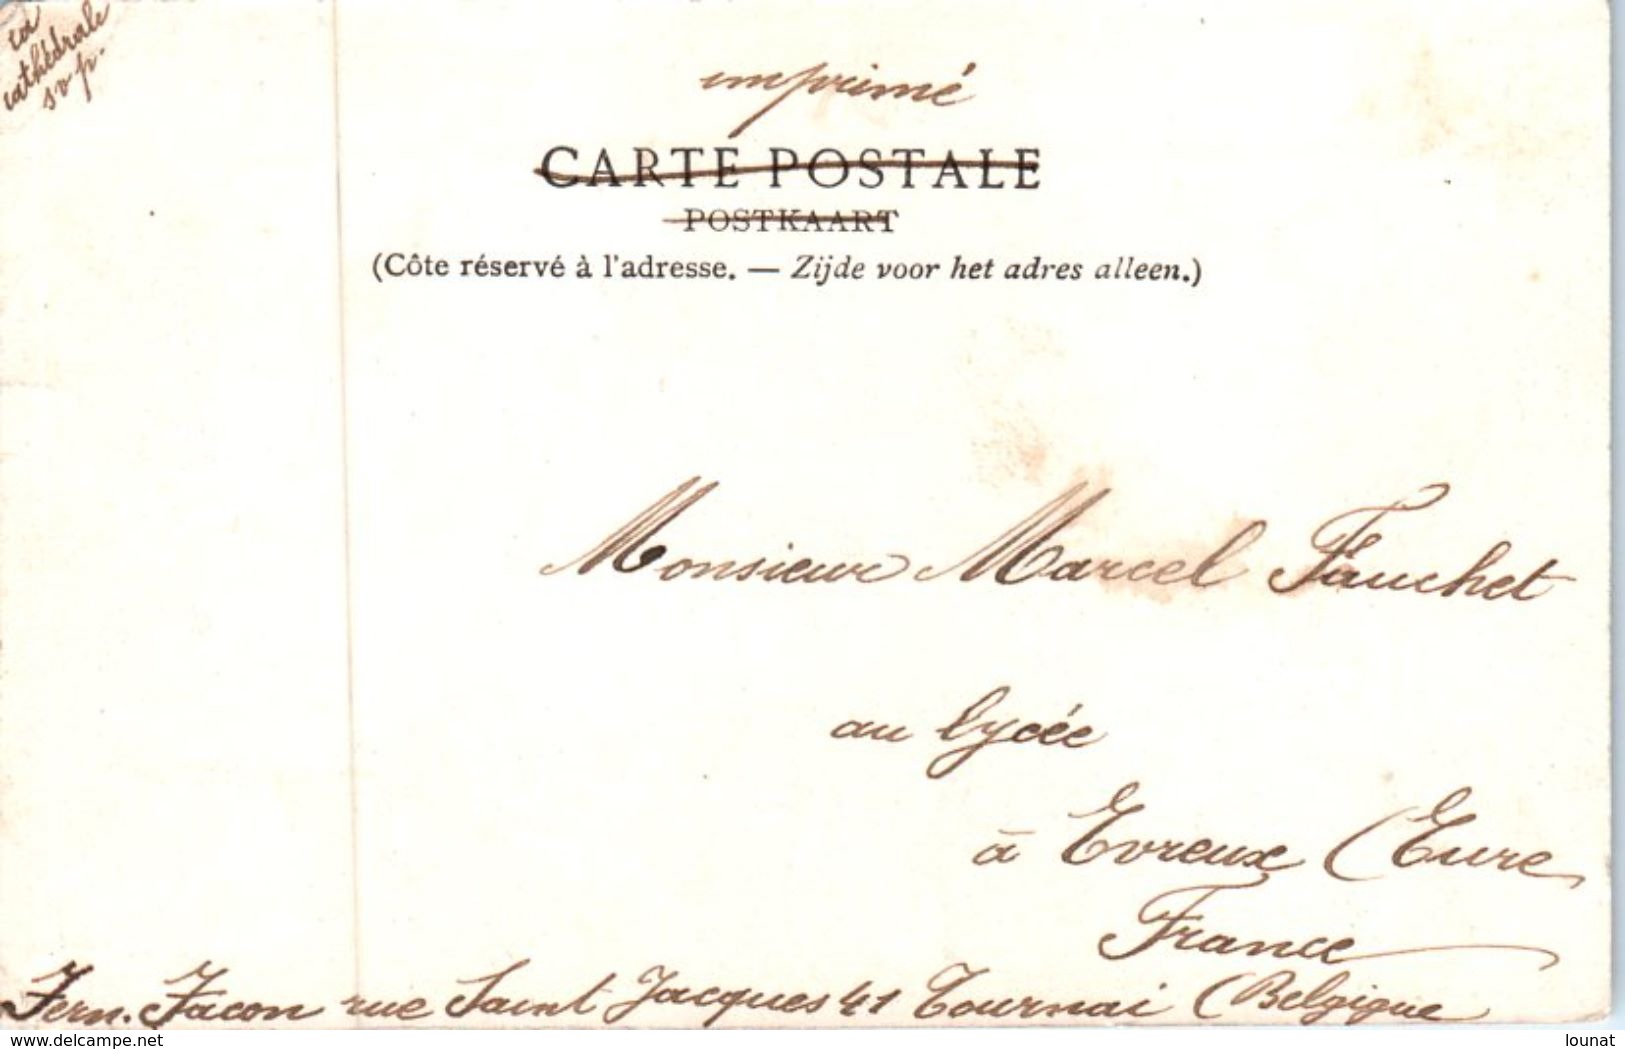 la
cathédrale
svp.
imprimé
CARTE POSTALE
POSTKAART
(Côte réservé à l'adresse. — Zijde voor het adres alleen.)
Monsieur Marcel Fauchet
au lycée
à Evreux (Eure
France
Fern. Facon rue Saint Jacques 41 Tournai (Belgique
www.delcampe.net
lounat